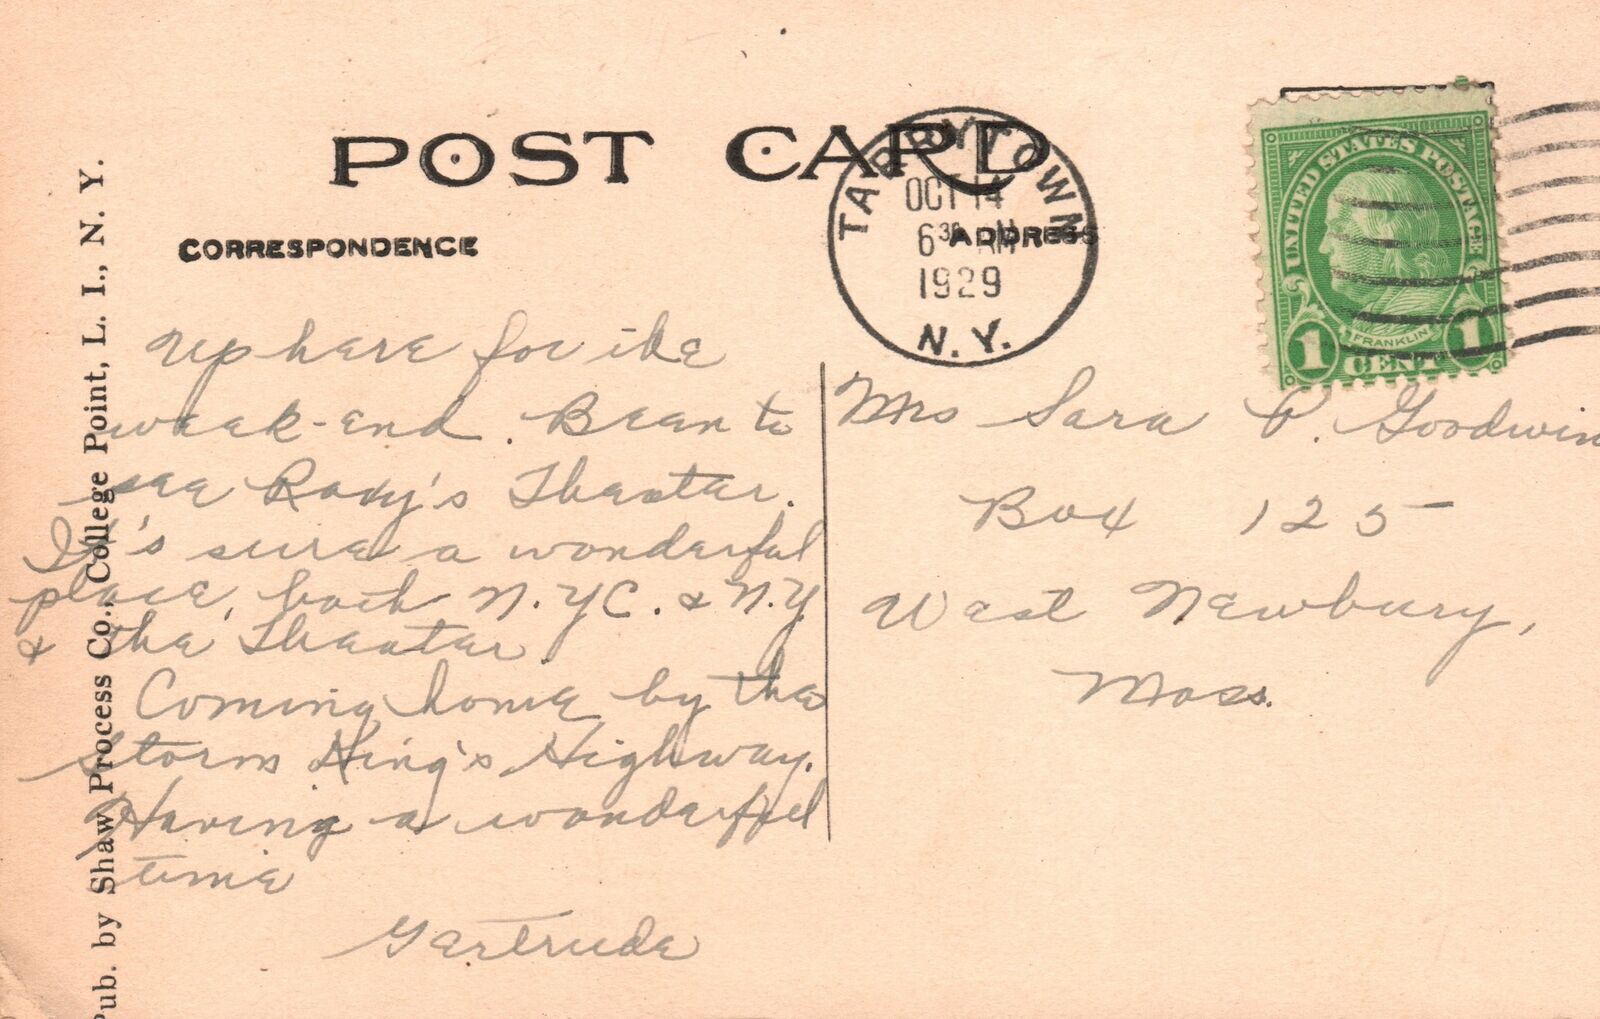 POST CARD
CORRESPONDENCE
ADDRESS
TARRYTOWN
OCT 14
6 30
1929
N. Y.
UNITED STATES POSTAGE
FRANKLIN
1 CENT 1
Pub. by Shaw Process Co., College Point, L. I., N. Y.
Up here for the
week-end. Been to
see Roxy's Theater.
It's sure a wonderful
place, both N.Y.C. & N.Y.
& the Theater.
Coming home by the
Storm King's Highway.
Having a wonderful
time
Gertrude
Mrs Sara P. Goodwin
Box 125
West Newbury,
Mass.